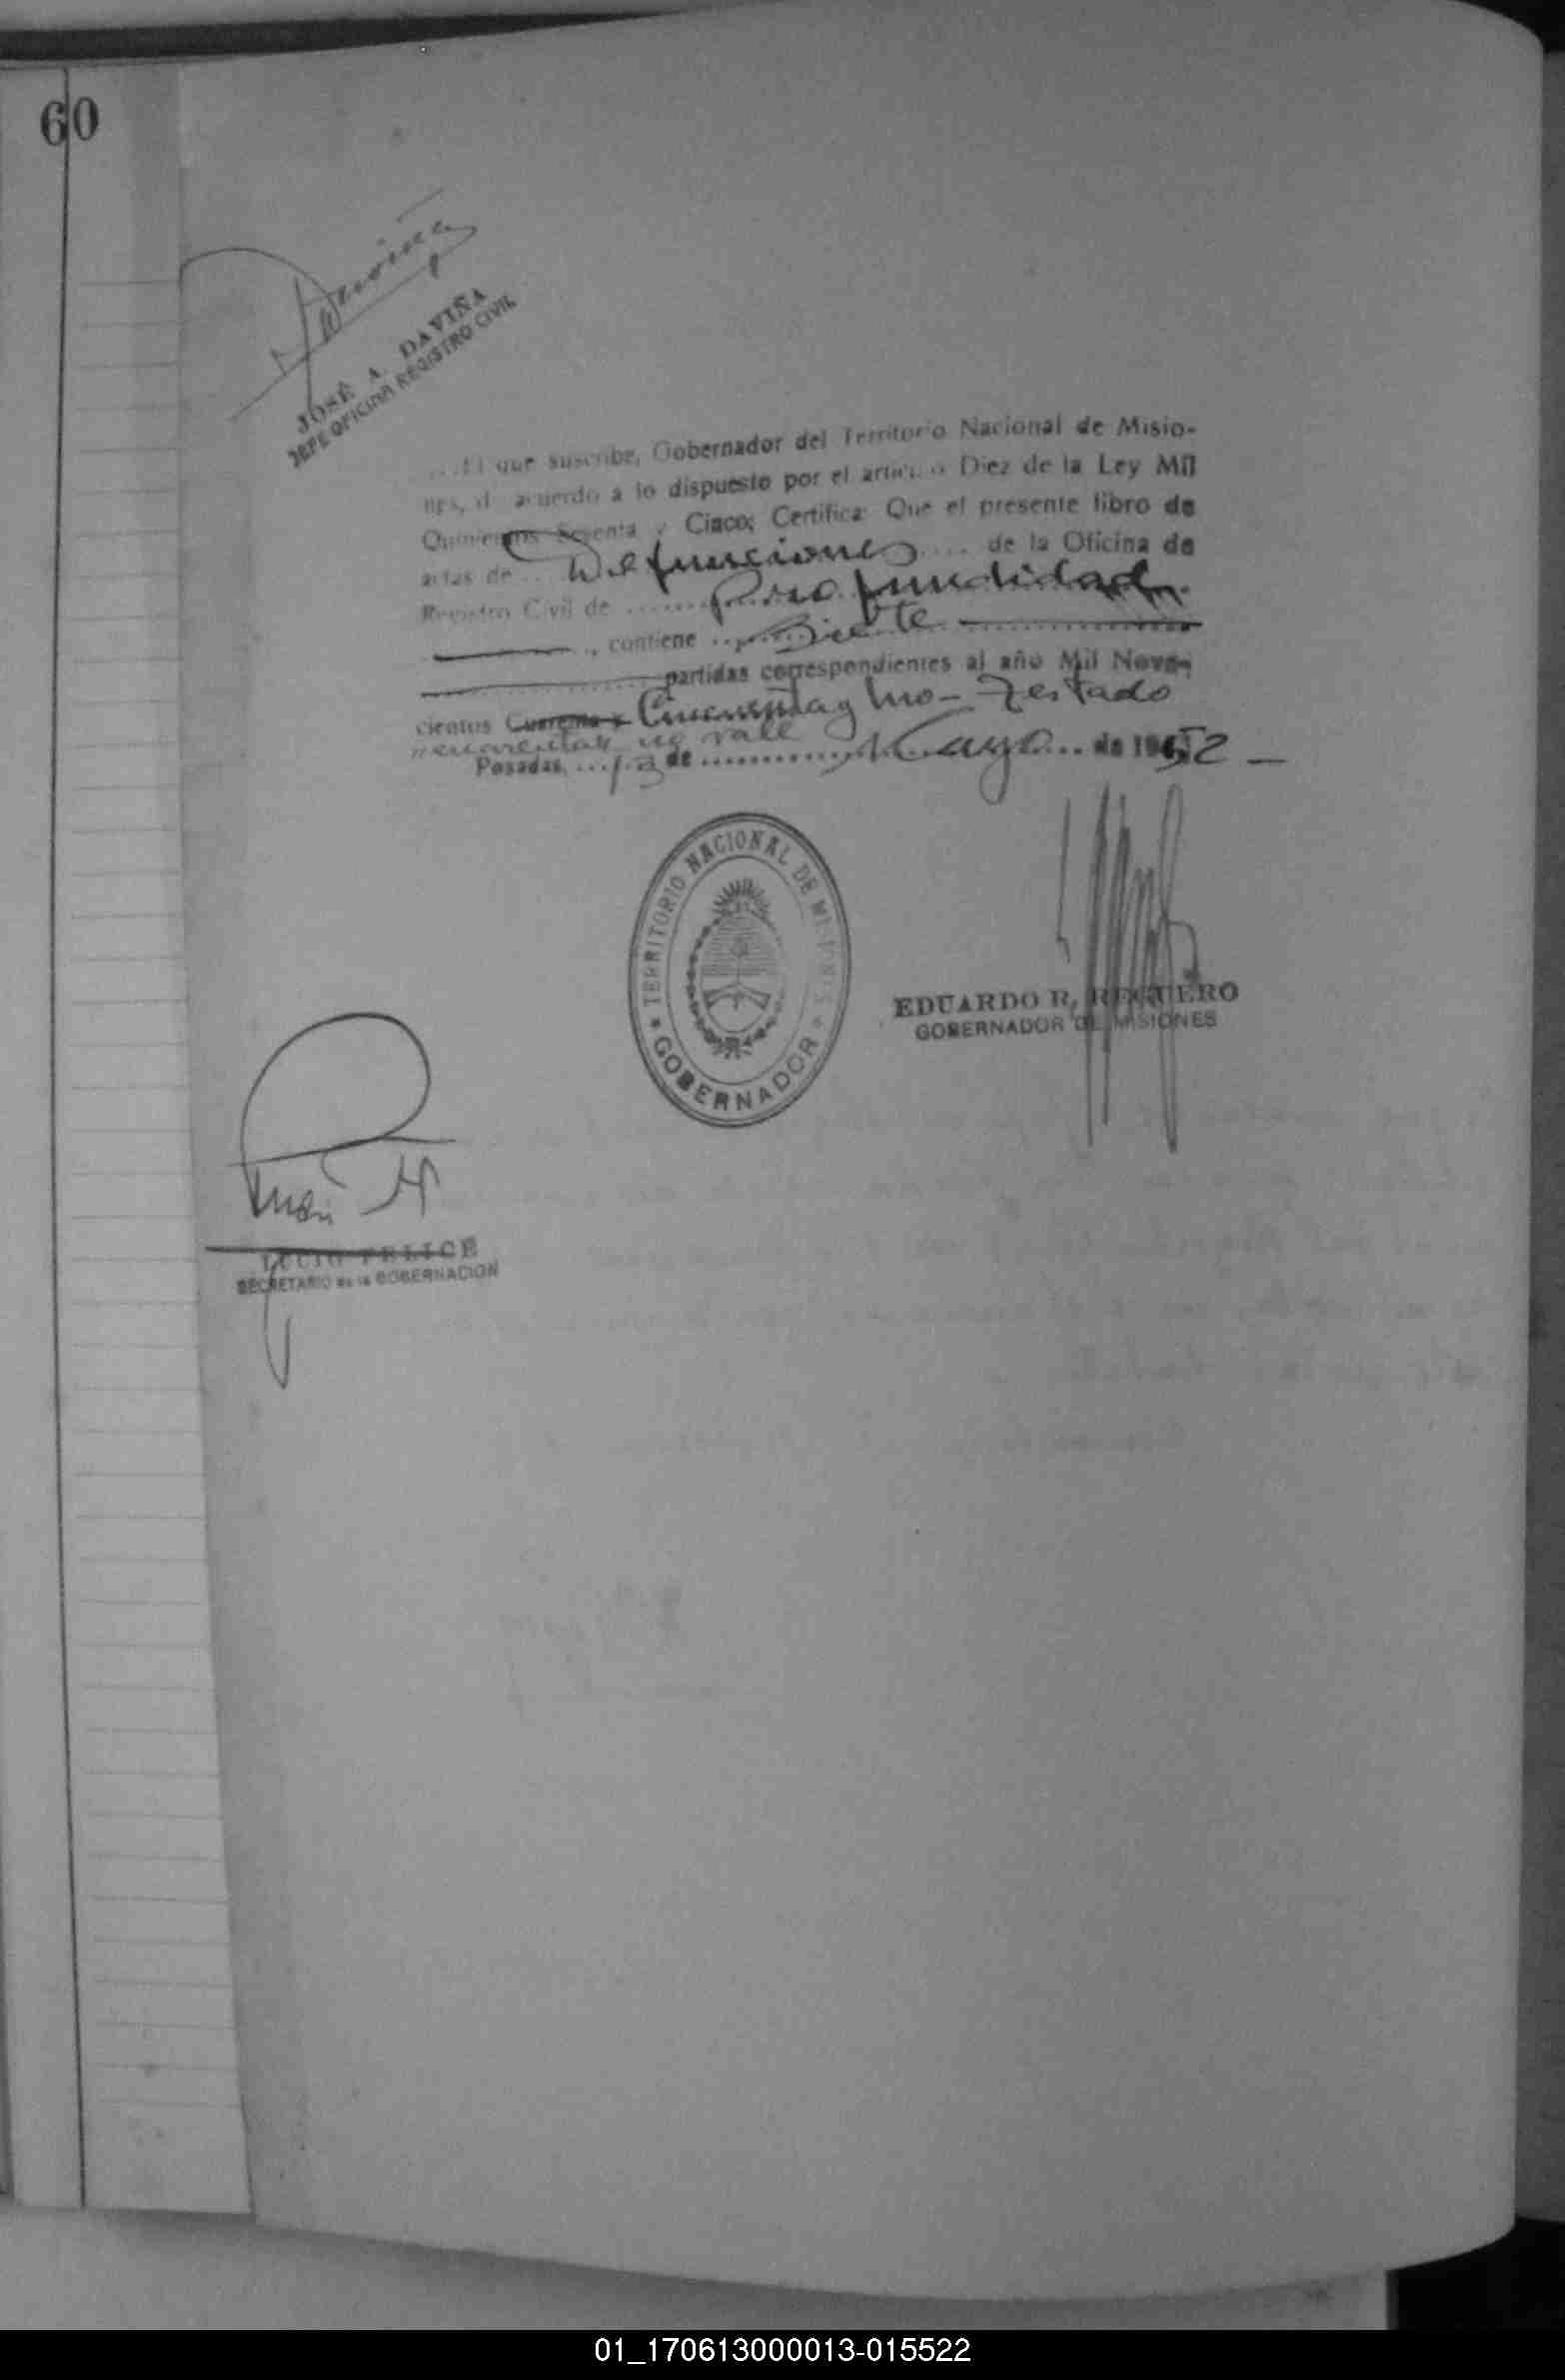 60
Daviña
JOSÉ A. DAVIÑA
JEFE OFICINA REGISTRO CIVIL
El que suscribe, Gobernador del Territorio Nacional de Misio-
nes, de acuerdo a lo dispuesto por el artículo Diez de la Ley Mil
Quinientos Sesenta y Cinco; Certifica: Que el presente libro de
actas de Defunciones de la Oficina de
Registro Civil de Profundidad
, contiene Siete
partidas correspondientes al año Mil Nove-
cientos Cuarenta y Cincuenta y Uno - Testado
no vale
Posadas, 13 de Mayo de 1952 -
TERRITORIO NACIONAL DE MISIONES
GOBERNADOR
EDUARDO R. REGUERO
GOBERNADOR DE MISIONES
LUCIO FELICE
SECRETARIO de la GOBERNACION
01_170613000013-015522